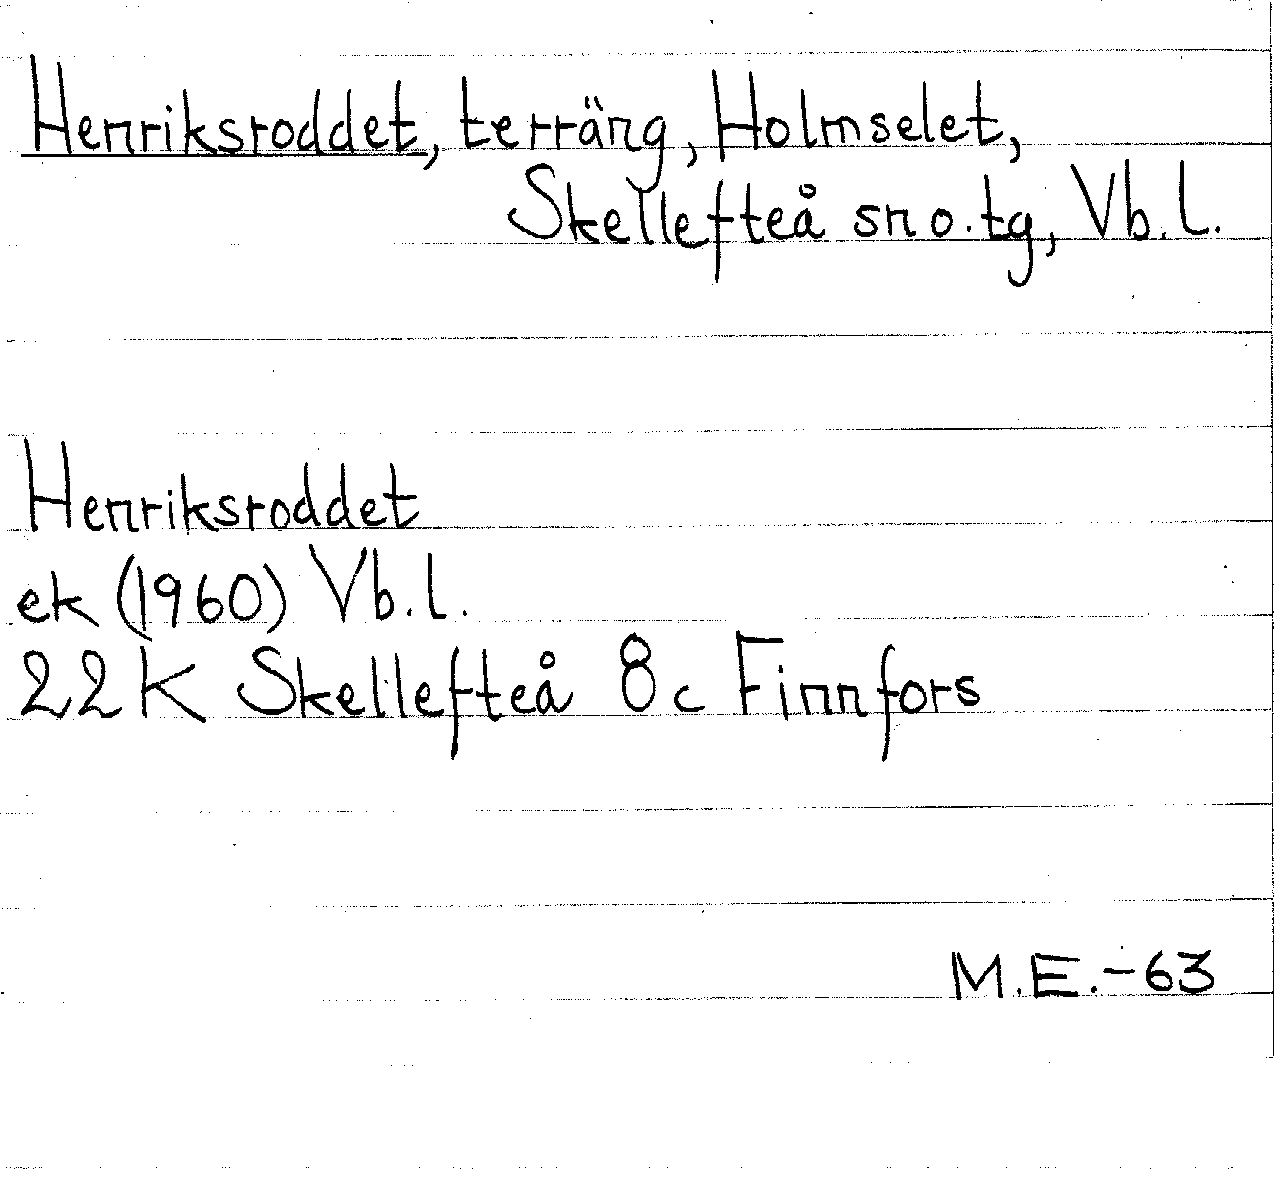 Henriksroddet, terräng, Holmselet,
Skellefteå sn o. tg, Vb.l.
Henriksroddet
ek (1960) Vb.l.
22K Skellefteå 8c Finnfors
M.E.-63